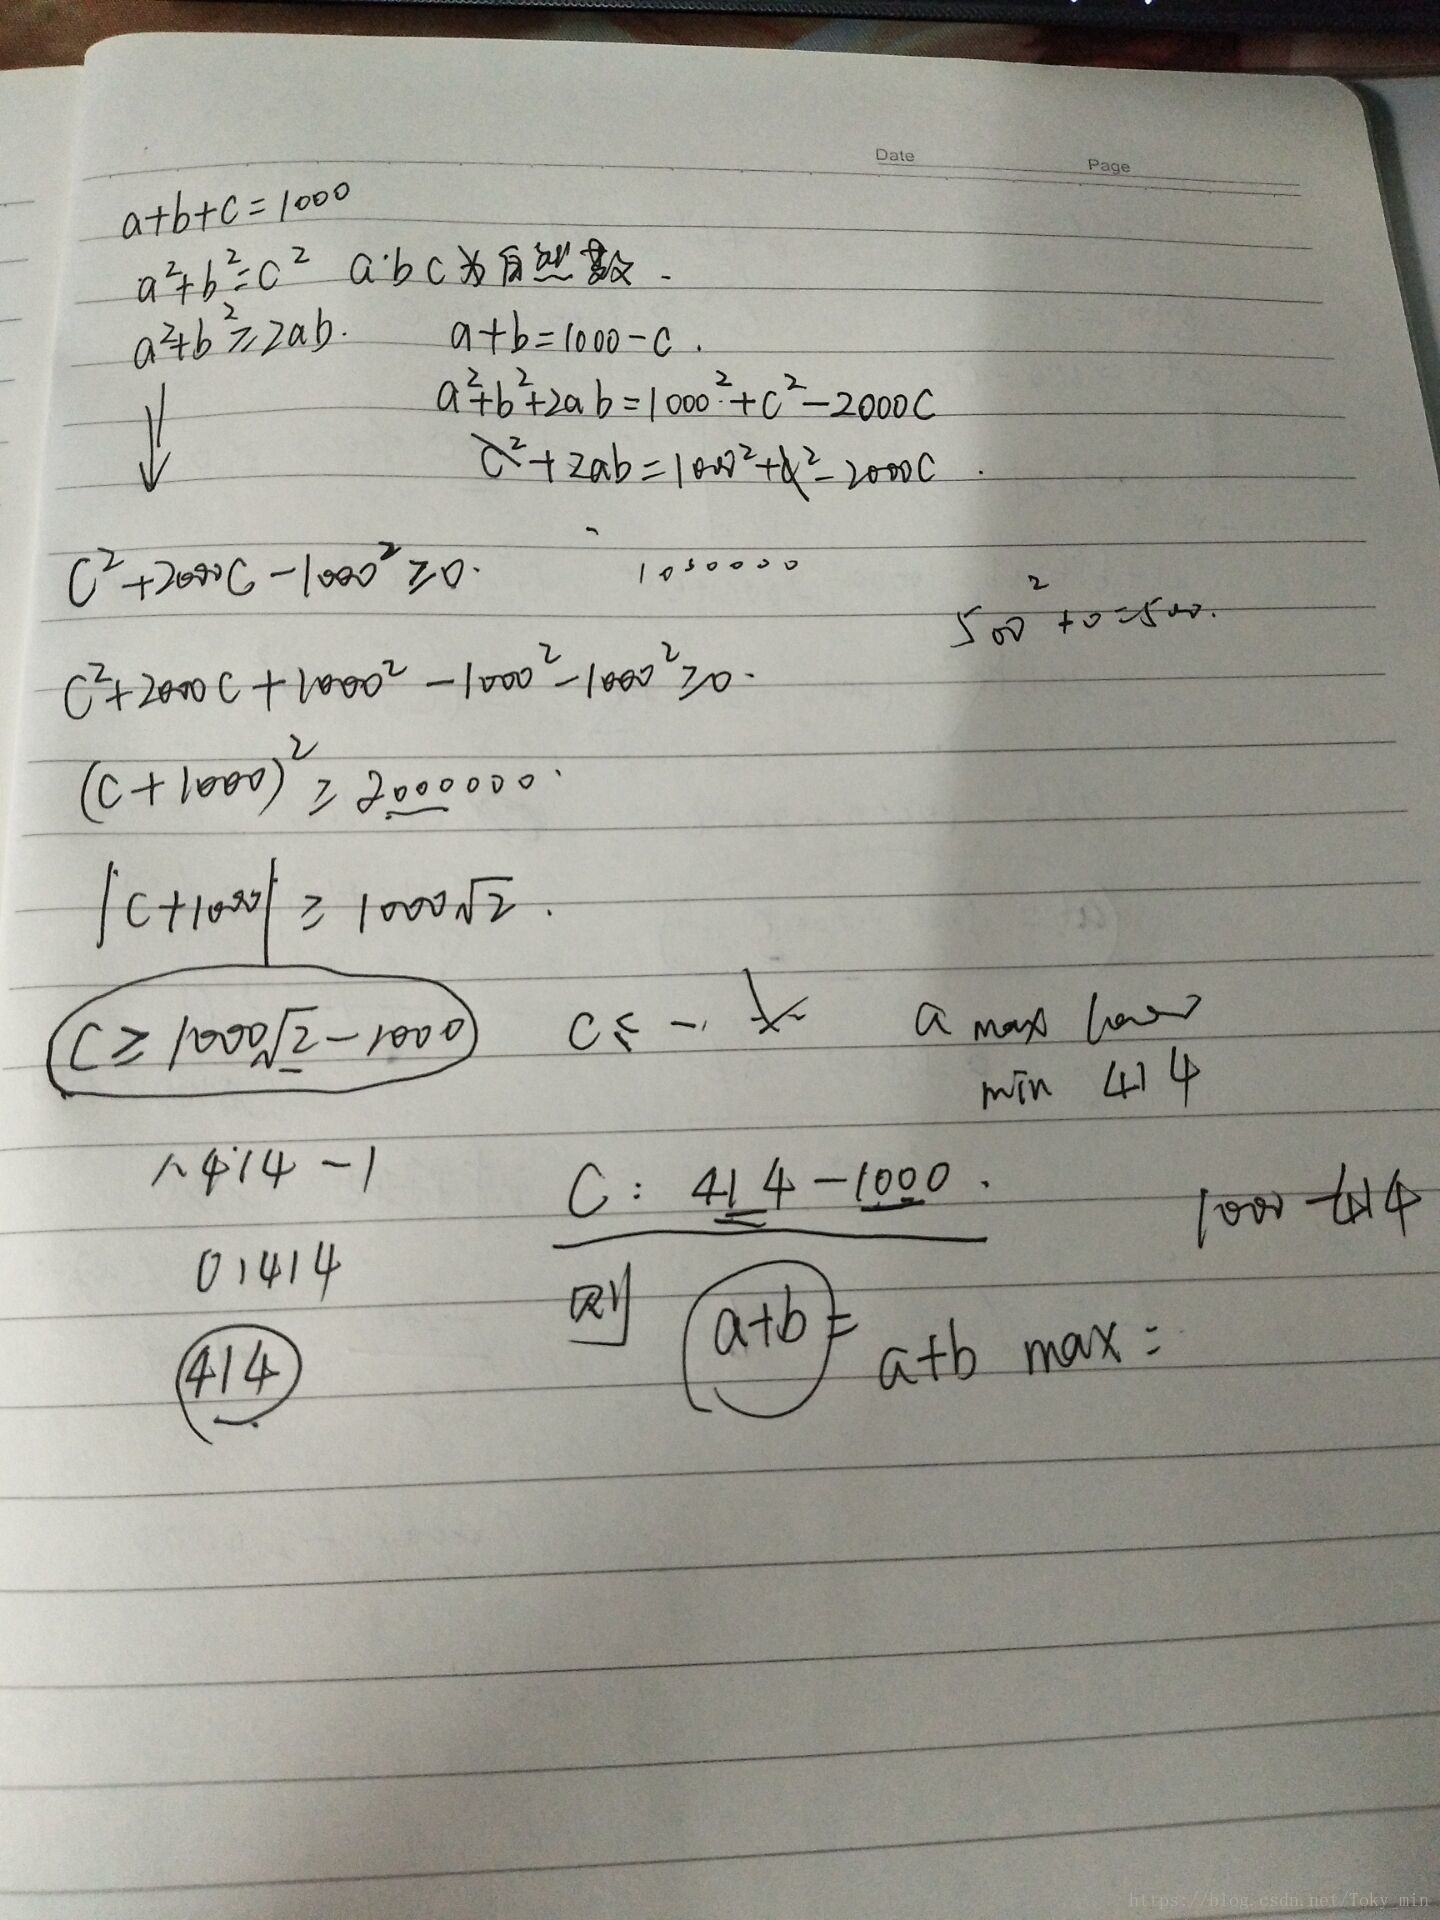 Date Page
a+b+c=1000
a²+b²=c² a·b c为自然数.
a²+b²≥2ab. a+b=1000-c.
a²+b²+2ab=1000²+c²-2000c
c²+2ab=1000²+c²-2000c.
c²+2000c-1000²≥0. 1000000
500²+0=500.
c²+2000c+1000²-1000²-1000²≥0.
(c+1000)²≥2000000.
|c+1000|≥1000√2.
c≥1000√2-1000 c≤-. a max
min 414
1.414-1 c: 414-1000. 1000-414
0.414 则 a+b= a+b max=
414
https://blog.csdn.net/Toky_min